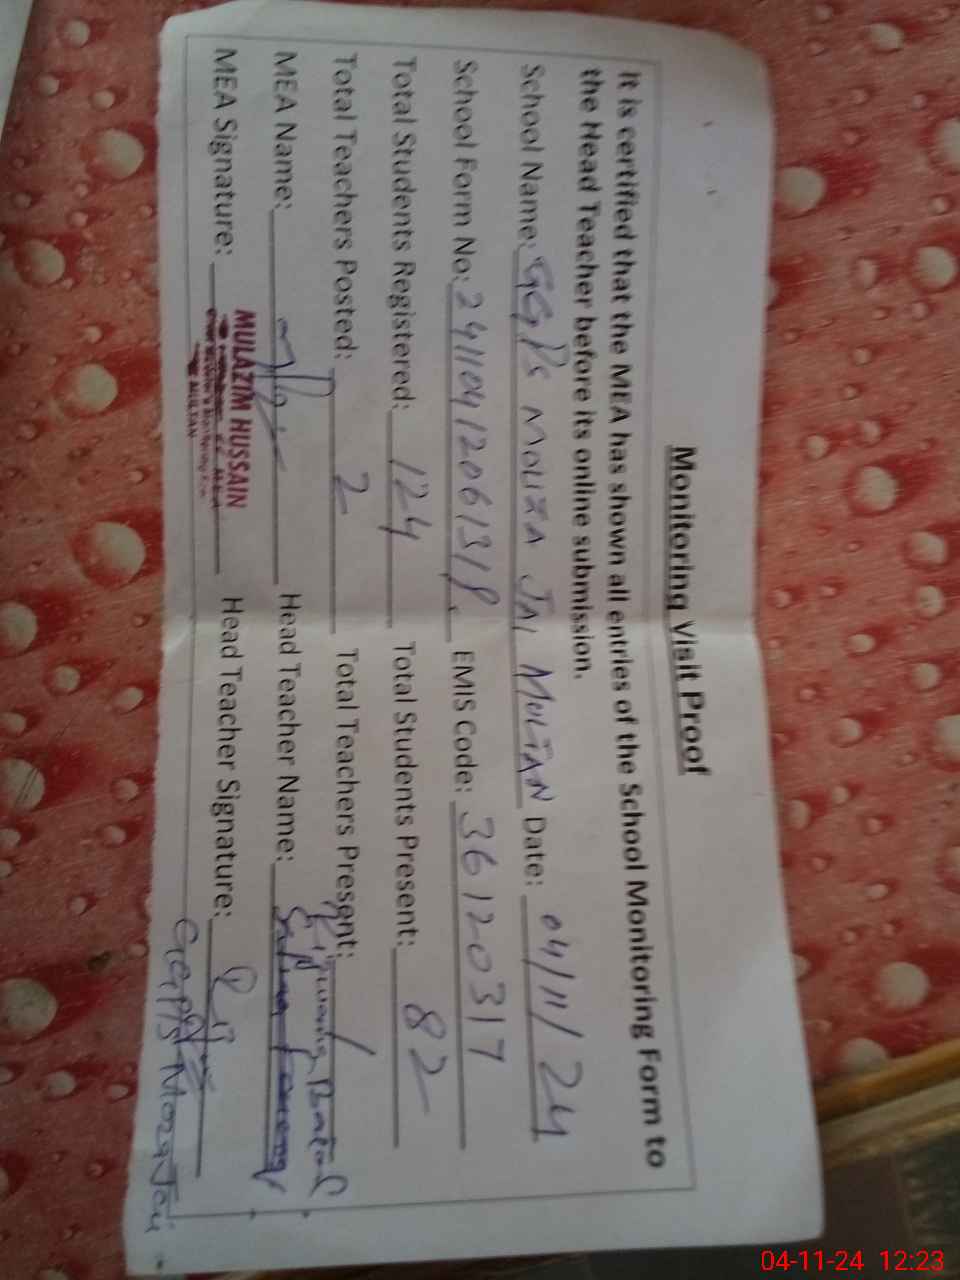 Monitoring Visit Proof
It is certified that the MEA has shown all entries of the School Monitoring Form to
the Head Teacher before its online submission.
School Name: GGPS MOUZA JAI MULTAN Date: 04/11/24
School Form No: 24110412061318 EMIS Code: 36120317
Total Students Registered: 124 Total Students Present: 82
Total Teachers Posted: 2 Total Teachers Present: 1
MEA Name: Head Teacher Name:
MEA Signature: Head Teacher Signature:
MULAZIM HUSSAIN
MULTAN
GGPS Moza Jai
04-11-24 12:23